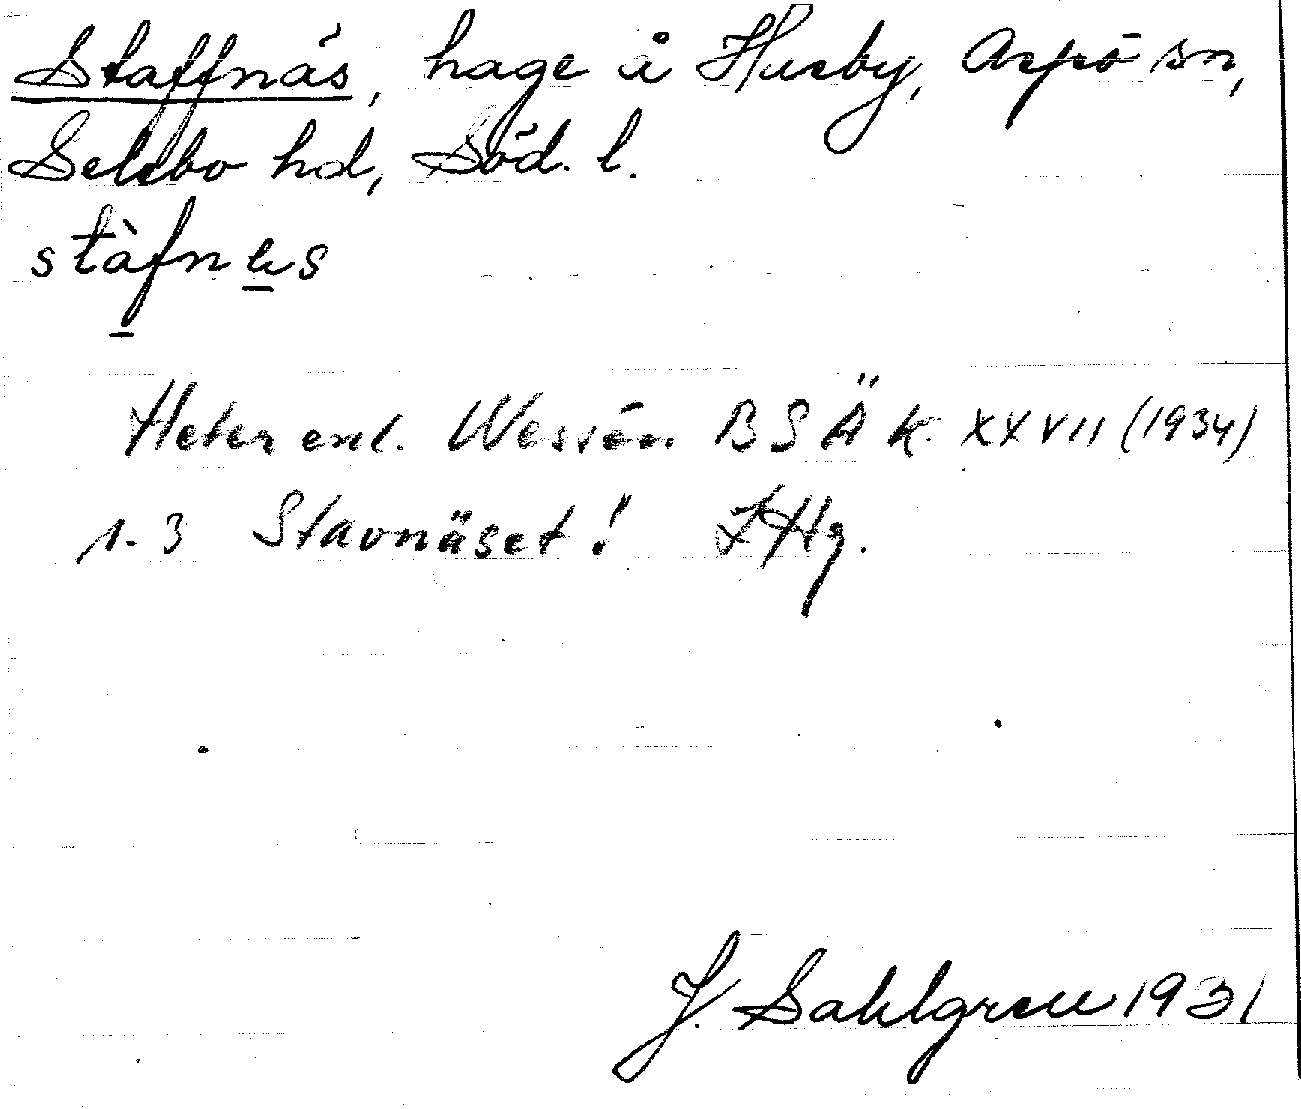 Staffnäs, hage å Husby, Aspö sn,
Selebo hd, Söd. l.
stàfnäs
Heter enl. Wessén BSÄK XXVII (1934)
s. 3 Stavnäset!
J. Sahlgren 1931